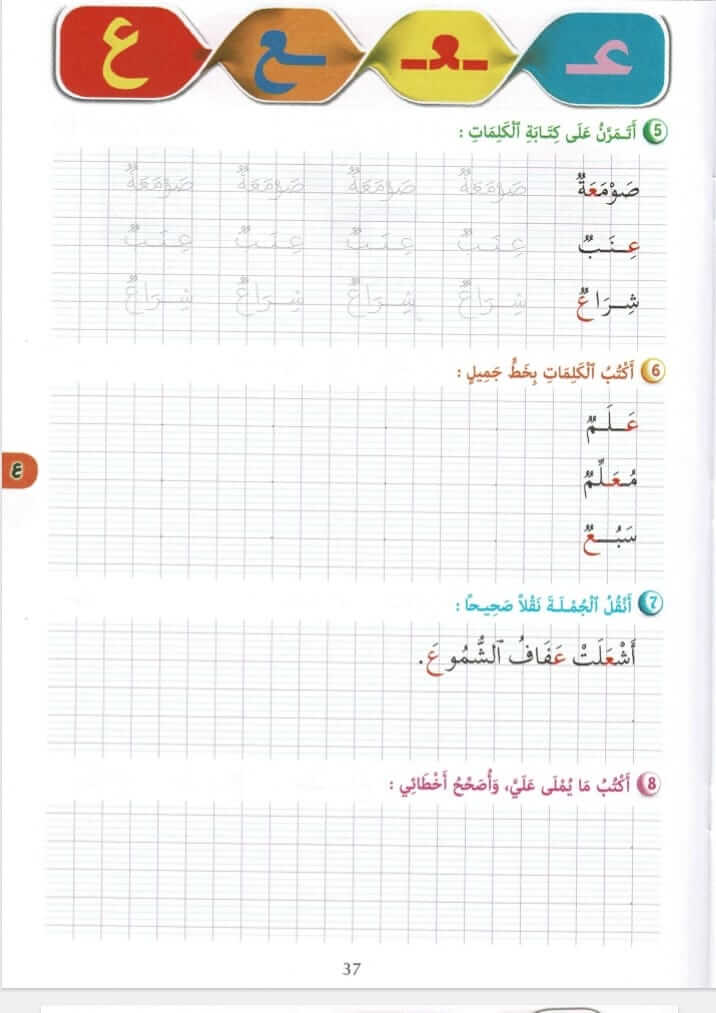 عـ ـعـ ـع ع
5 أَتَمَرَّنُ عَلَى كِتَابَةِ ٱلْكَلِمَاتِ :
صَوْمَعَةٌ صَوْمَعَةٌ صَوْمَعَةٌ صَوْمَعَةٌ صَوْمَعَةٌ
عِـنَـبٌ عِـنَـبٌ عِـنَـبٌ عِـنَـبٌ عِـنَـبٌ
شِـرَاعٌ شِـرَاعٌ شِـرَاعٌ شِـرَاعٌ شِـرَاعٌ
6 أَكْتُبُ ٱلْكَلِمَاتِ بِخَطٍّ جَمِيلٍ :
عَـلَـمٌ
مُـعَـلِّمٌ
ع
سَبُـعٌ
7 أَنْقُلُ ٱلْجُمْلَةَ نَقْلاً صَحِيحًا :
أَشْعَلَتْ عَفَافُ ٱلشُّمُوعَ.
8 أَكْتُبُ مَا يُمْلَى عَلَيَّ، وَأُصَحِّحُ أَخْطَائِي :
37